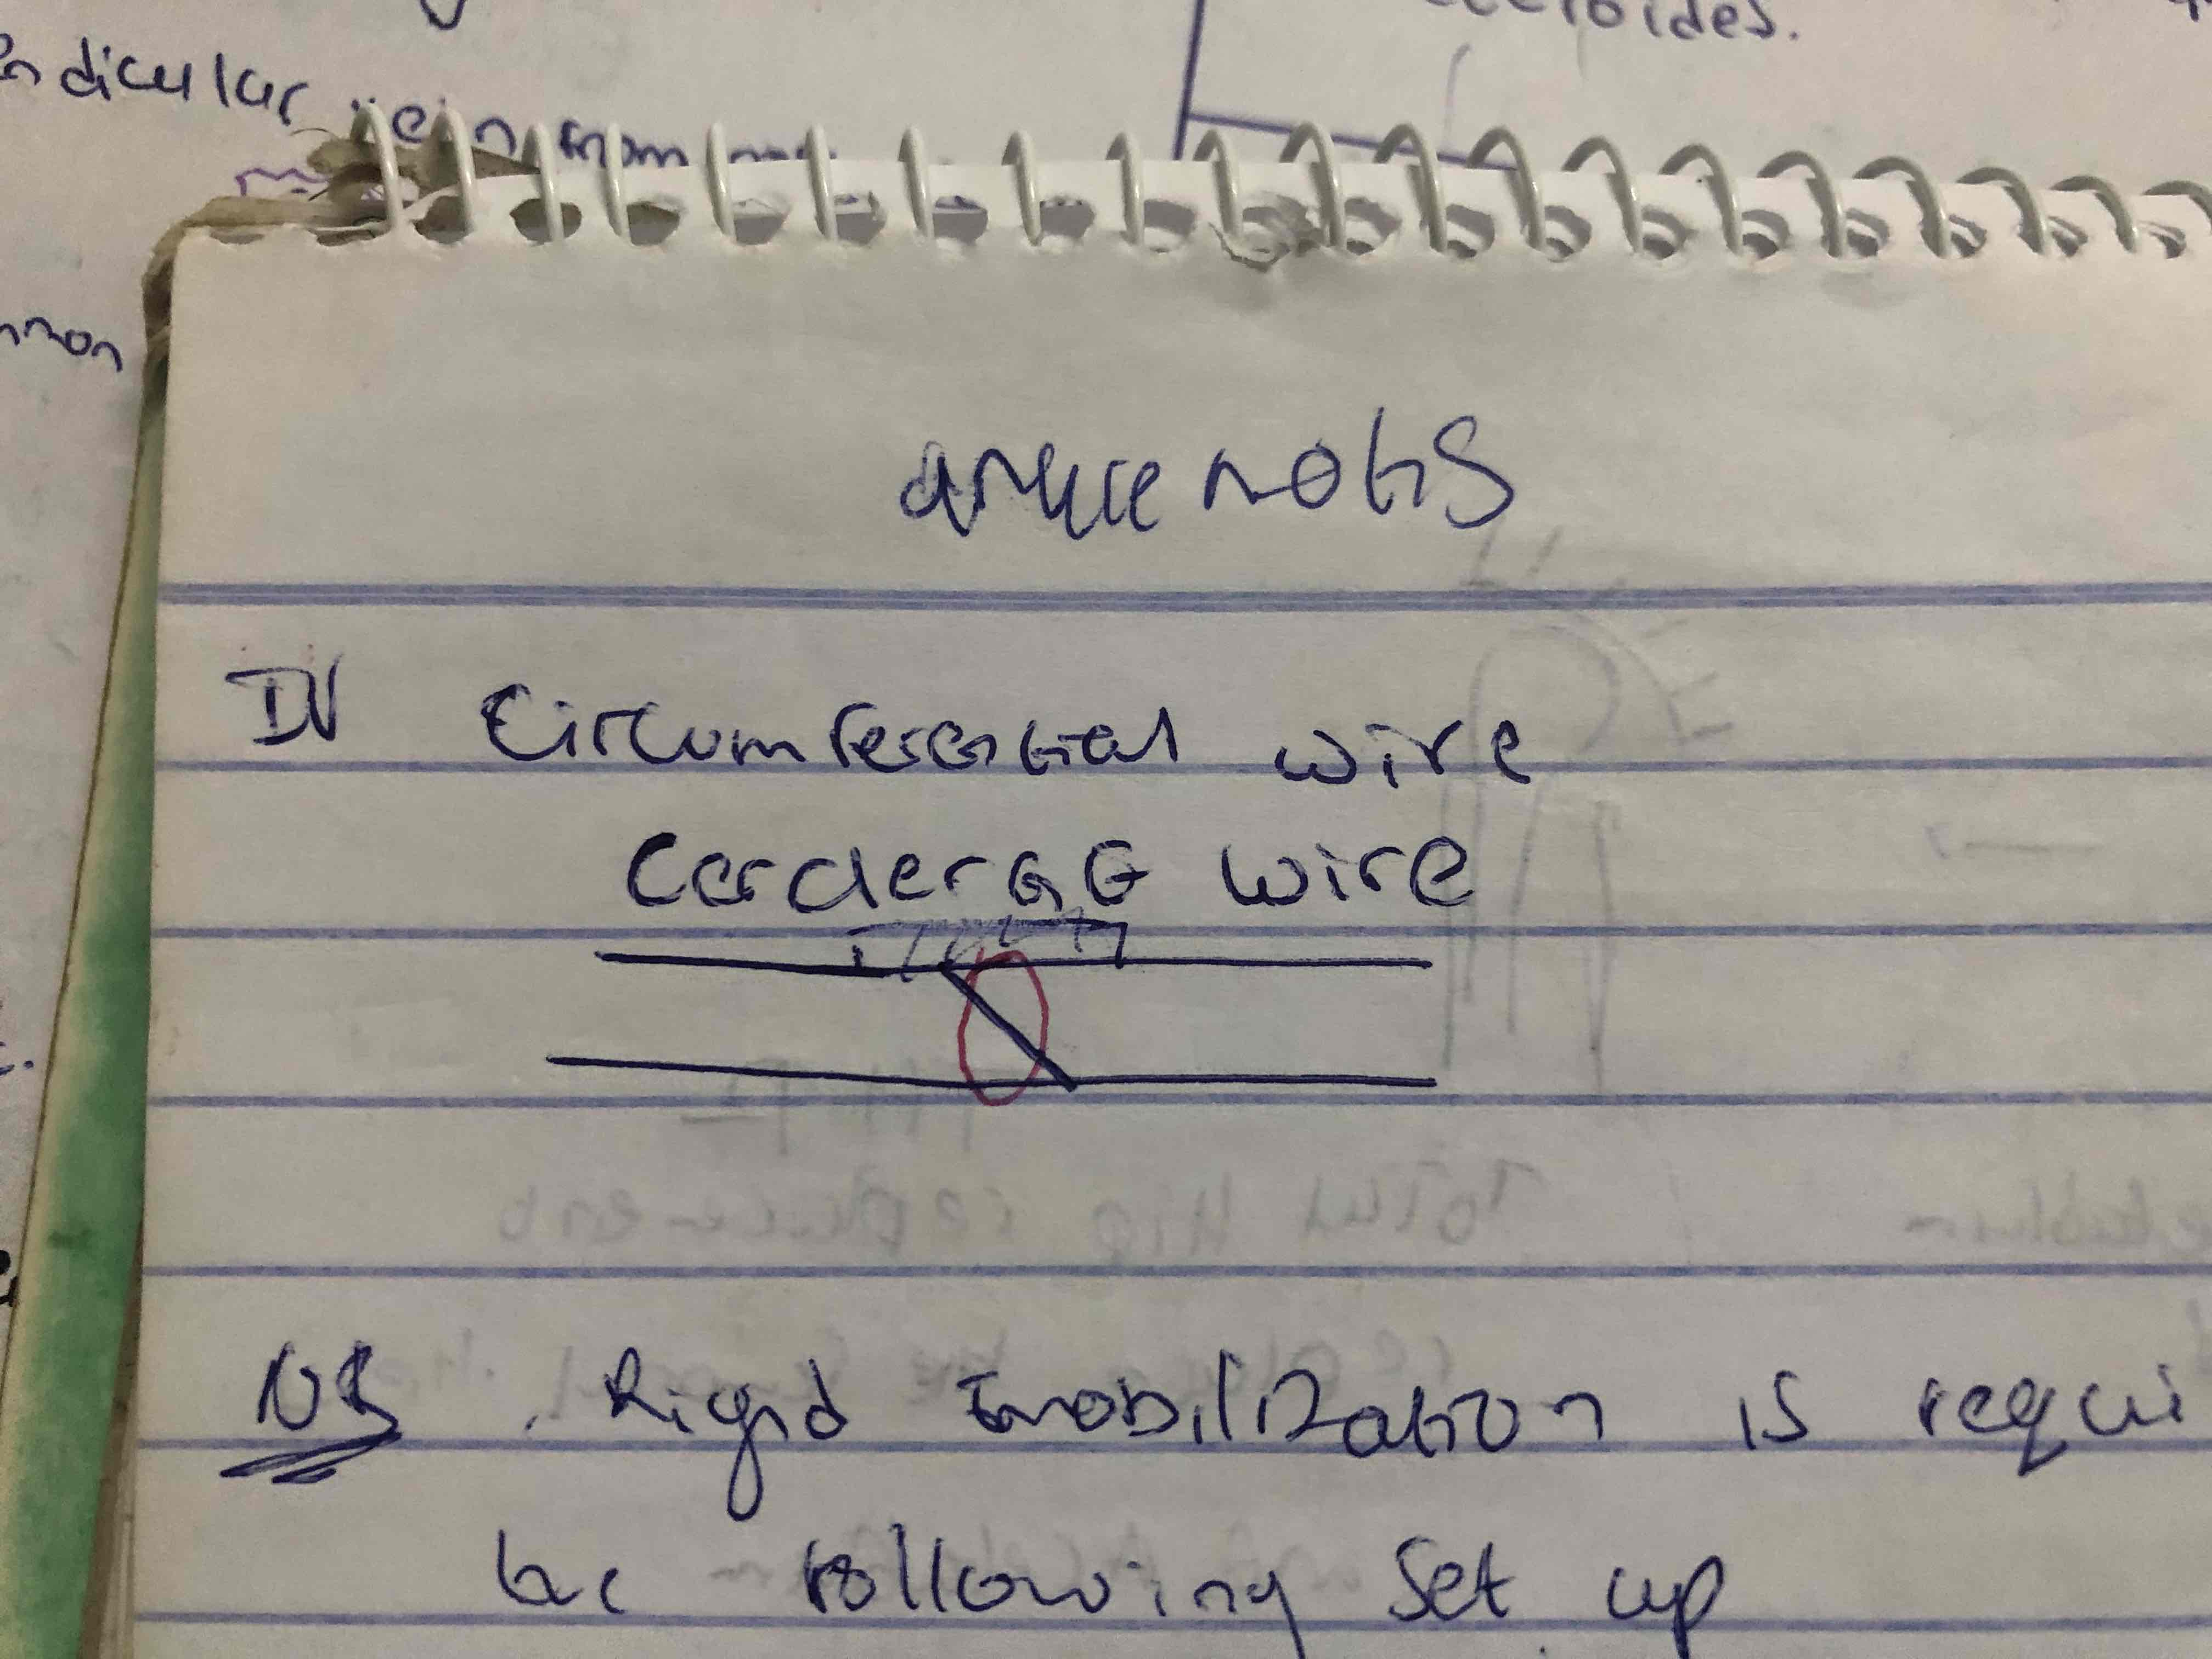 ndicular vein from
eroides.
mmon
notes
IV Circumferential wire
CerclerGE wire
NB . Rigid Imobilization is requi
following Set up